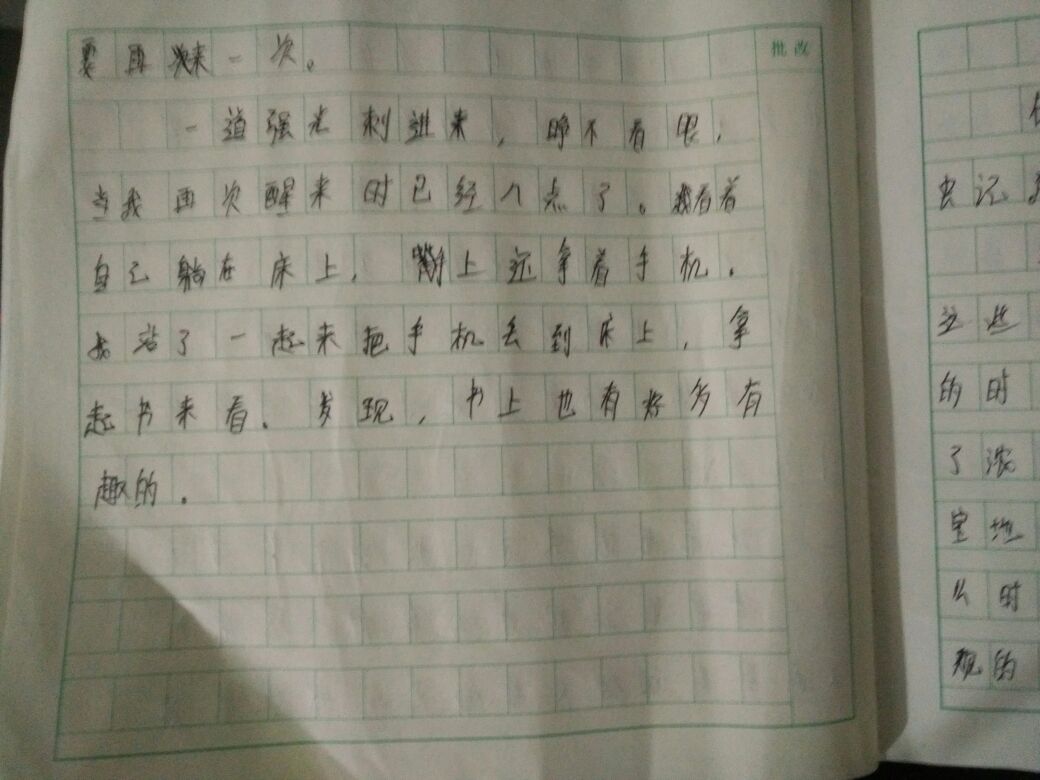 要再来一次。
批改
一道强光刺进来，睁不看眼，
当我再次醒来时已经八点了。我看着
自己躺在床上，手上还拿着手机。
我站了一起来把手机丢到床上，拿
起书来看。发现，书上也有好多有
趣的。
虫记
这些
的时
了浓
室地
么时
观的